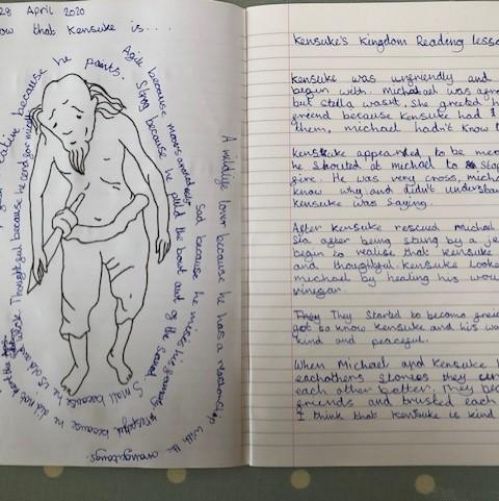 28 April 2020
ow that Kensuke is....
because he paints.
Agile because moves around easily.
Strong because he pulled the boat out of the sand.
Small because he is
Sad because he misses his family
A wildlife lover because he has a relationship with the orangutangs.
Thoughtful because he
Kensuke's Kingdom Reading lesso
Kensuke was unfriendly and
begin with. michael was agre
but stella wasnt. She greeted
friend because Kensuke had
them, michael hadn't know t
Kensuke appeared to be mea
he shouted at michael to
fire. He was very cross, micha
know why and didn't understa
Kensuke was saying.
After Kensuke rescued michael
Sea after being stung by a j
begin to realise that Kensuke
and thoughtful. Kensuke looke
michael by healing his wou
vinegar.
They They started to become freie
got to know Kensuke and his wa
kind and peaceful.
When Michael and Kensuke
eachothers stories they un
each other better. They be
friends and trusted each
I think that Kensuke is kind